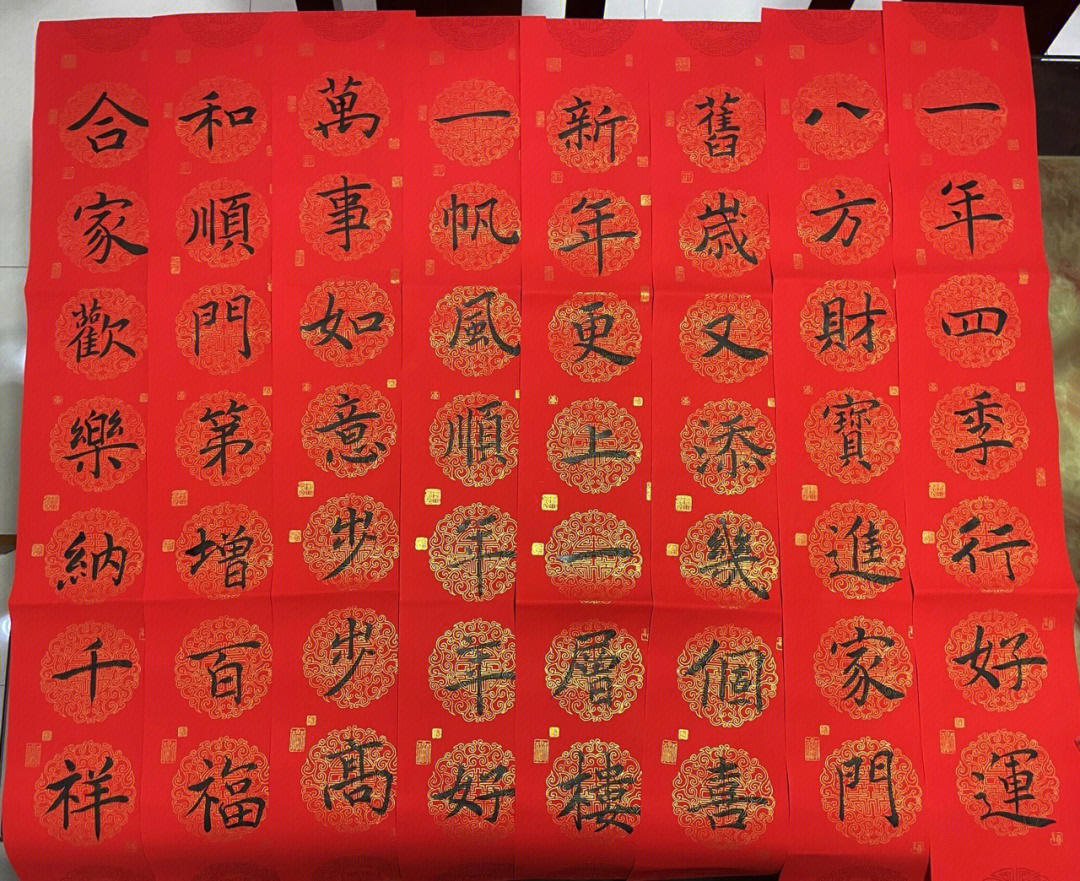 一年四季行好運
八方財寶進家門
舊歲又添幾個喜
新年更上一層樓
一帆風順年年好
萬事如意步步高
和順門第增百福
合家歡樂納千祥